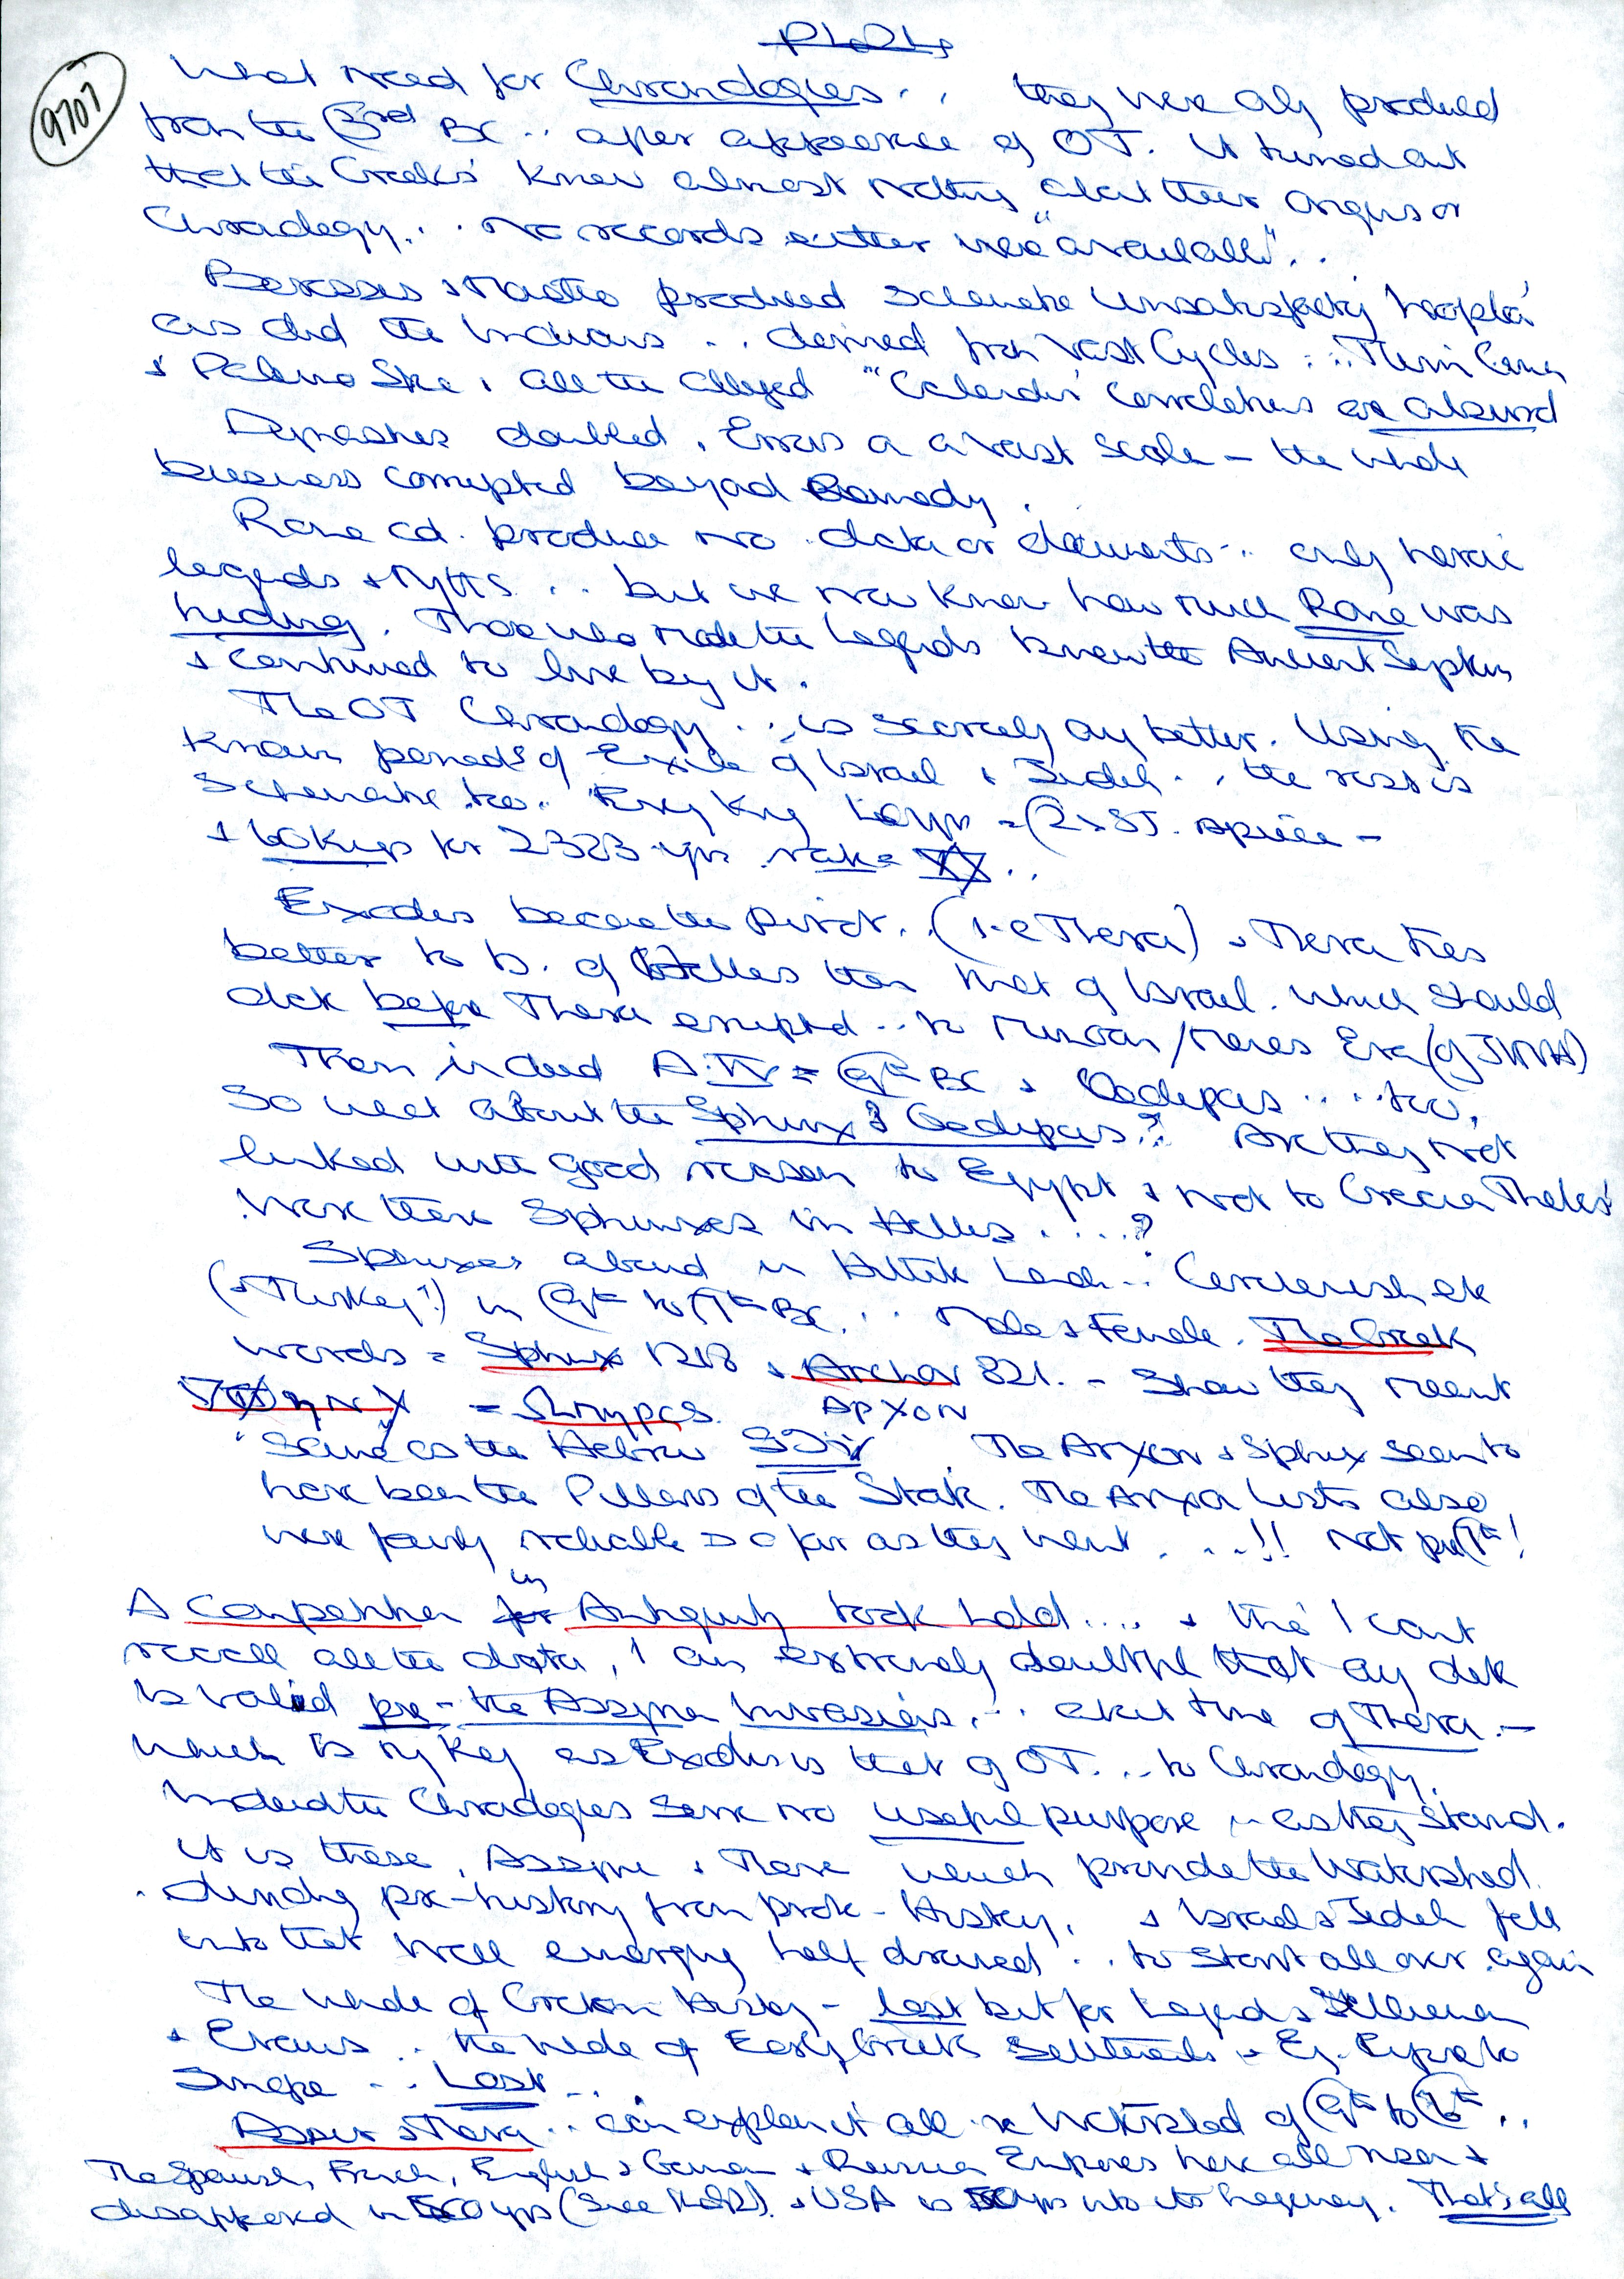 9707
What need for Chronologies .. they were only produced
from the 3rd BC .. after appearance of OT. It turned out
that the Greeks' knew almost nothing about their origins or
Chronology... no records either were "available" ..
Berosses & Manetho produced schematic unsatisfactory
as did the Indians .. derived from Vast Cycles ... Turin Canon
& Palermo Stone, all the alleged "Calendar" Correlations are absurd
Dynasties doubled. Errors on a vast scale – the whole
business corrupted beyond Remedy.
Rome cd. produce no data or documents .. only heroic
legends & Myths ... but we now know how much Rome was
hiding. Those who made the Legends knew the Ancient
& continued to live by it.
The OT Chronology .. is scarcely any better. Using the
known periods of Exile of Israel & Judah .. the rest is
schematic too. Every King
& for 2323 yrs make
Exodus became the Pivot .. (i.e Thera) & Thera ties
better to of Hellas than that of Israel. which should
date before Thera erupted .. to Minoan / Era (of
Then indeed = 9th BC & Oedipus .... too.
So what about the Sphinx & Oedipus? Are they not
linked with good reason to Egypt & not to Grecian Thebes
Were there Sphinxes in Hellas ....?
Sphinxes abound in Hittite Lands .. Carchemish etc
(& Turkey) in 9th to 7th BC ... Male & Female. The Greek
words = Sphinx 1218 & Archon 821. – Show they meant
= ΑΡΧΟΝ
same as the Hebrew The Arxon & Sphinx seem to
have been the Pillars of the State. The Arxon Lists also
were fairly reliable so far as they went ...!! Not pre 7th!
A Competition in Antiquity took hold .... & tho' I can't
recall all the data, I am extremely doubtful that any date
is valid pre-the Assyrian Invasions, .. about time of Thera. –
which is my key as Exodus is that of OT... to Chronology.
Indeed the Chronologies serve no useful purpose .. as they stand.
It is these, Assyria & Thera which provide the Watershed
dividing pre-history from proto-History. & Israel & Judah fell
into that well emerging half drowned .. to start all over again
The whole of Cretan History – lost but for Legend & Schliemann
& Evans .. the whole of Early Greek Settlements – Eg. to
Sinope ... Lost ...
Assur & Thera .. can explain it all .. Watershed of 9th to 6th ..
The Spanish, French, English & German & Russian Empires have all risen &
disappeared in 500 yrs & USA is 50 yrs into its hegemony. That's all